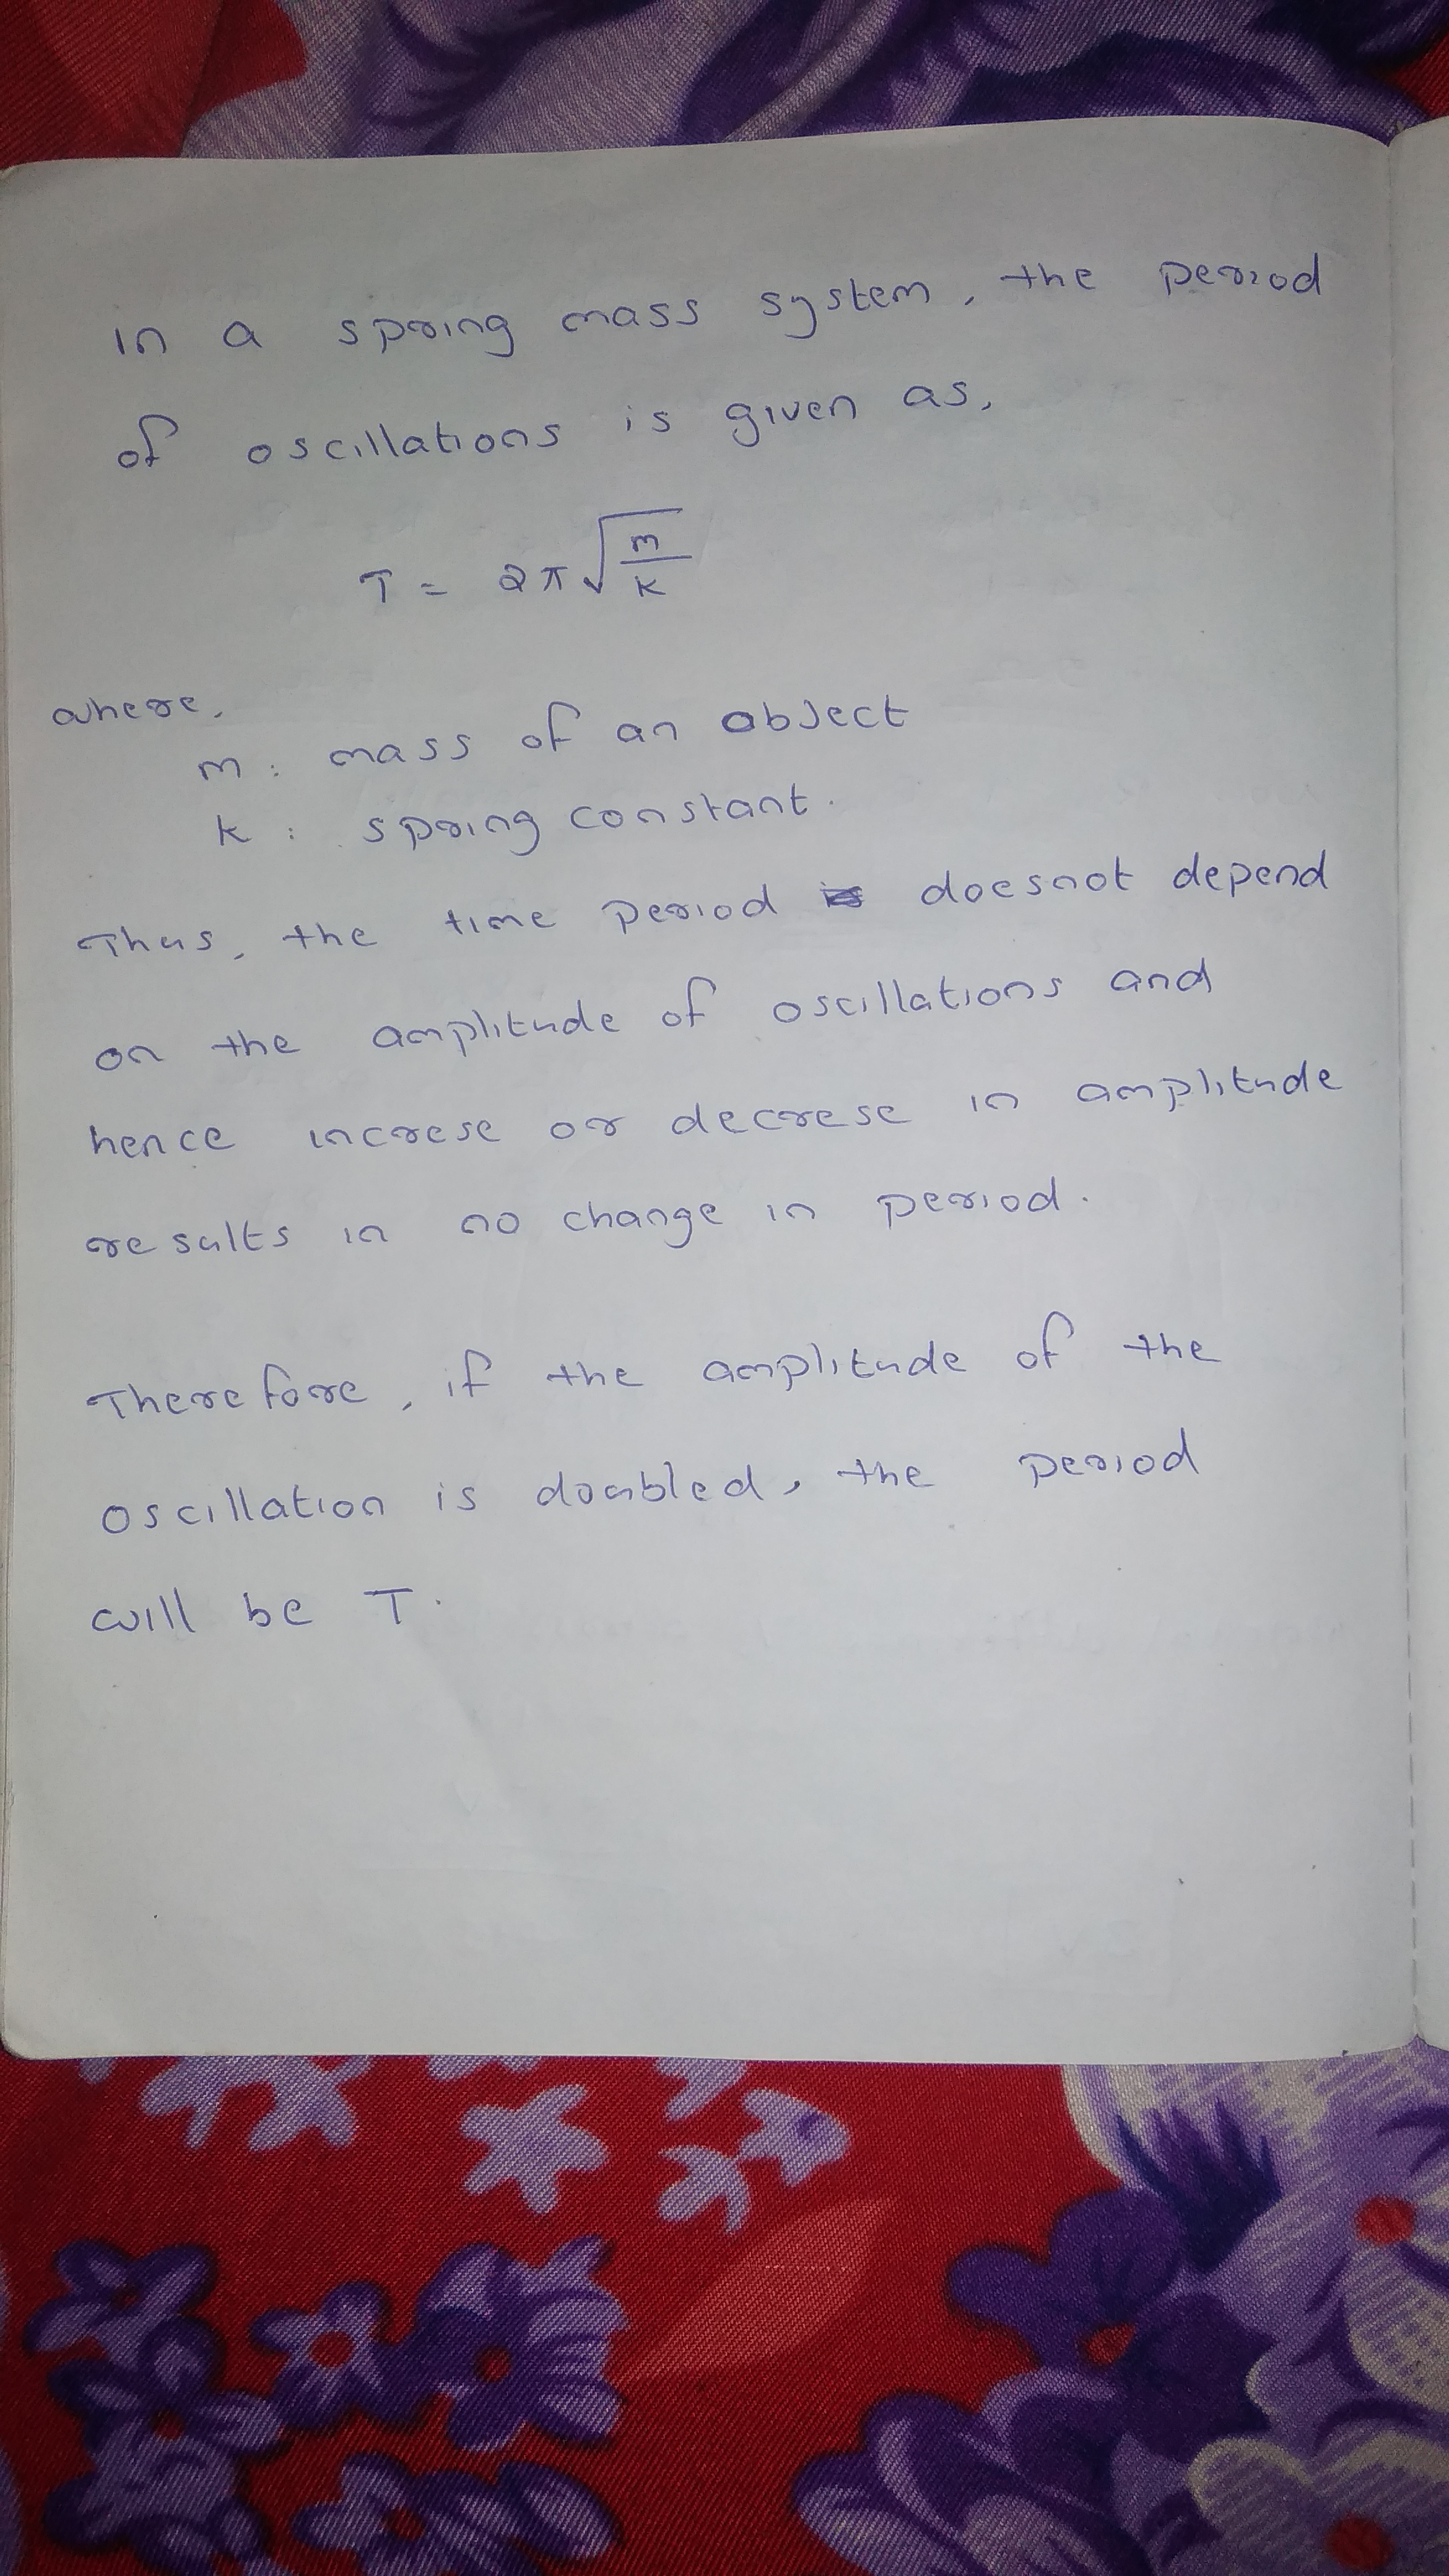 in a spring mass system, the period
of oscillations is given as,
T = 2π√(m/k)
where,
m : mass of an object
k : spring constant.
Thus, the time period is doesnot depend
on the amplitude of oscillations and
hence increse or decrese in amplitude
results in no change in period.
Therefore, if the amplitude of the
oscillation is doubled, the period
will be T.